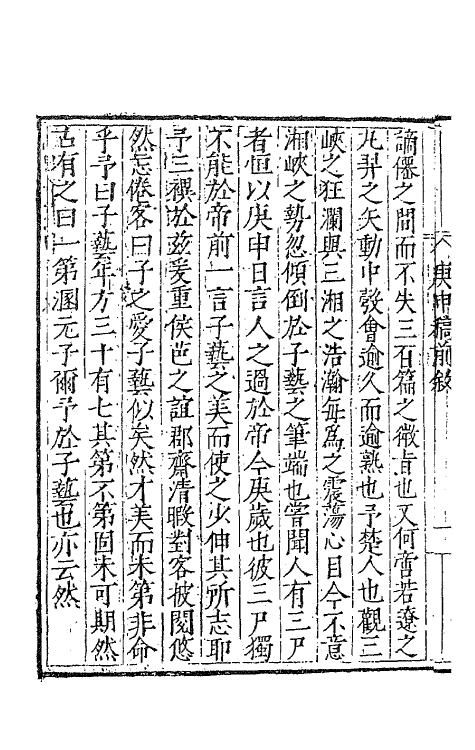 庚申稿前敘
謫僊之間而不失三百篇之微旨也又何啻若遼之
九羿之矢動中彀會逾久而逾熟也予楚人也觀三
峽之狂瀾與三湘之浩瀚每爲之震蕩心目今不意
湘峽之勢忽傾倒於子藝之筆端也嘗聞人有三尸
者恒以庚申日言人之過於帝今庚歲也彼三尸獨
不能於帝前一言子藝之美而使之少伸其所志耶
予三禩於茲爰重侯芭之誼郡齋清暇對客披閱悠
然忘倦客曰子之愛子藝似矣然才美而未第非命
乎予曰子藝年方三十有七其第不第固未可期然
古有之曰一第溷元子爾予於子藝也亦云然